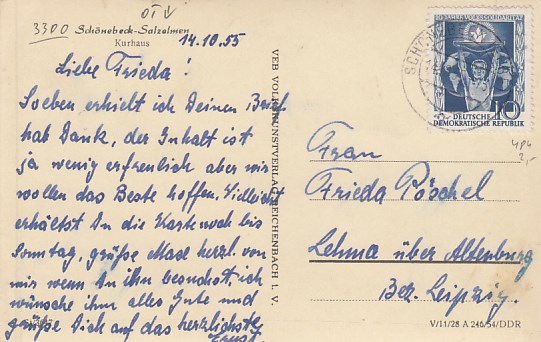 3300
Schönebeck-Salzelmen
Kurhaus
14.10.55
Liebe Frieda!
Soeben erhielt ich Deinen Brief
hab Dank, der Inhalt ist
ja wenig erfreulich aber wir
wollen das Beste hoffen. Vielleicht
erhältst Du die Karte noch bis
Sonntag, grüße herzl. von
mir wenn Du ihn besuchst, ich
wünsche ihm alles Gute und
grüße Dich auf das herzlichste
Ernst.
VEB VOLKSKUNSTVERLAG REICHENBACH I. V.
10 JAHRE VOLKSSOLIDARITÄT
10
DEUTSCHE
DEMOKRATISCHE REPUBLIK
SCHÖN
Frau
Frieda Pöschel
Lehma über Altenburg
Bez. Leipzig.
V/11/28 A 246/54/DDR